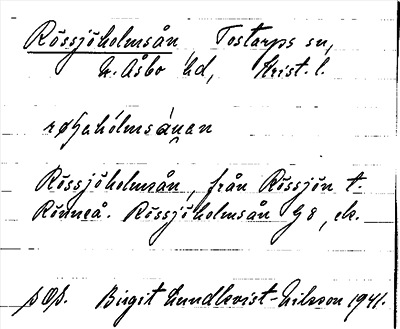 Rössjöholmsån, Tostarps sn,
N. Åsbo hd, Krist. l.
røʃɟøhólmsànen
Rössjöholmsån, från Rössjön t.
Rönneå. Rössjöholmsån G8, ek.
Birgit Lundkvist-Nilsson 1941.